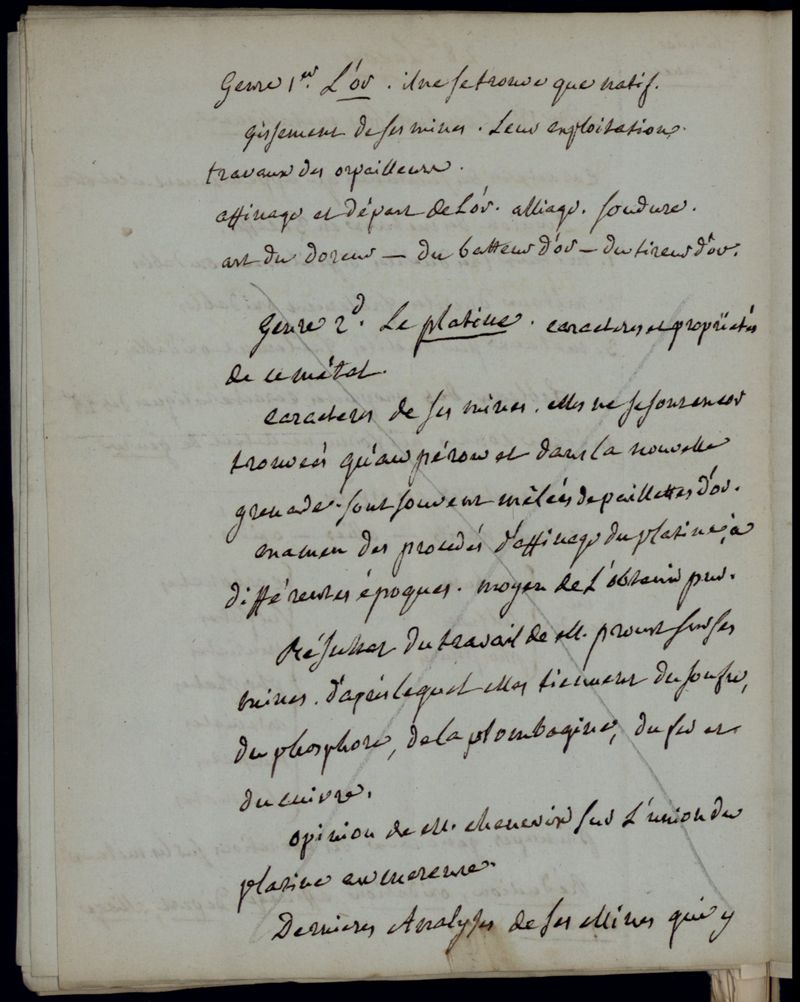 Genre 1er. L'or. il ne se trouve que natif.
gissement de ses mines. Leur exploitation.
travaux des orpailleurs.
affinage et départ de L'or. alliage. soudure.
art du doreur — du batteur d'or — du tireur d'or.
Genre 2d. Le platine. caracteres et propriétés
de ce métal.
caracteres de ses mines. elles ne se sont encor
trouvées qu'au pérou et dans la nouvelle
grenade. sont souvent mêlées de paillettes d'or.
examen des procédés d'affinage du platine, à
différentes époques. moyen de L'obtenir pur.
Résultat du travail de M. proust sur ses
mines. d'après lequel elles tiennent du soufre,
du phosphore, de la plombagine, du fer et
du cuivre.
opinion de M. chenevix sur L'union du
platine au mercure.
Dernieres Analyses de ses Mines qui y